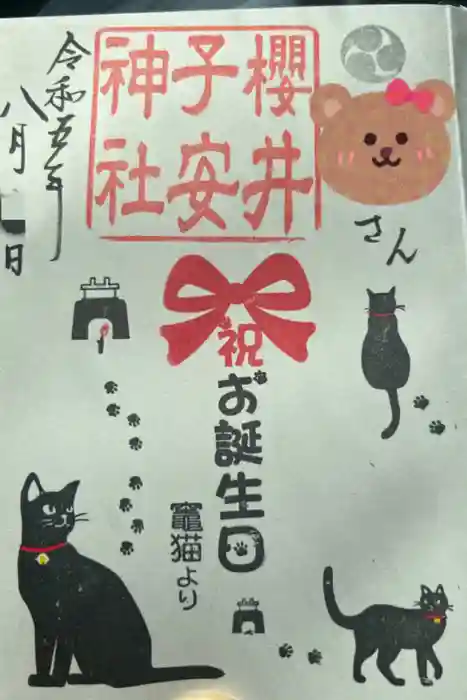 櫻井
子安
神社
さん
令和五年
八月 日
祝
お誕生日
竈猫より